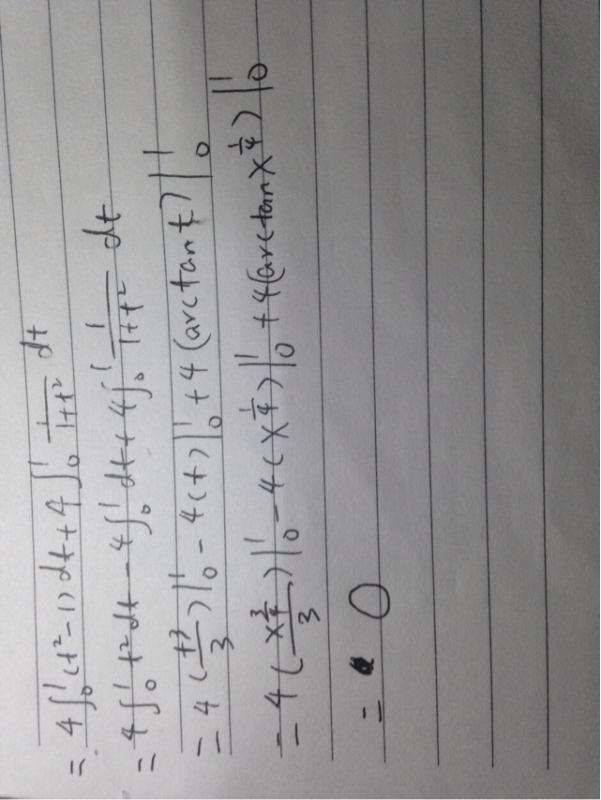 = 4∫₀¹(t²-1)dt+4∫₀¹ 1/(1+t²) dt
= 4∫₀¹ t²dt - 4∫₀¹ dt + 4∫₀¹ 1/(1+t²) dt
= 4(t³/3)|₀¹ - 4(t)|₀¹ + 4(arctant)|₀¹
= 4(x^(3/4)/3)|₀¹ - 4(x^(1/4))|₀¹ + 4(arctanx^(1/4))|₀¹
= 0